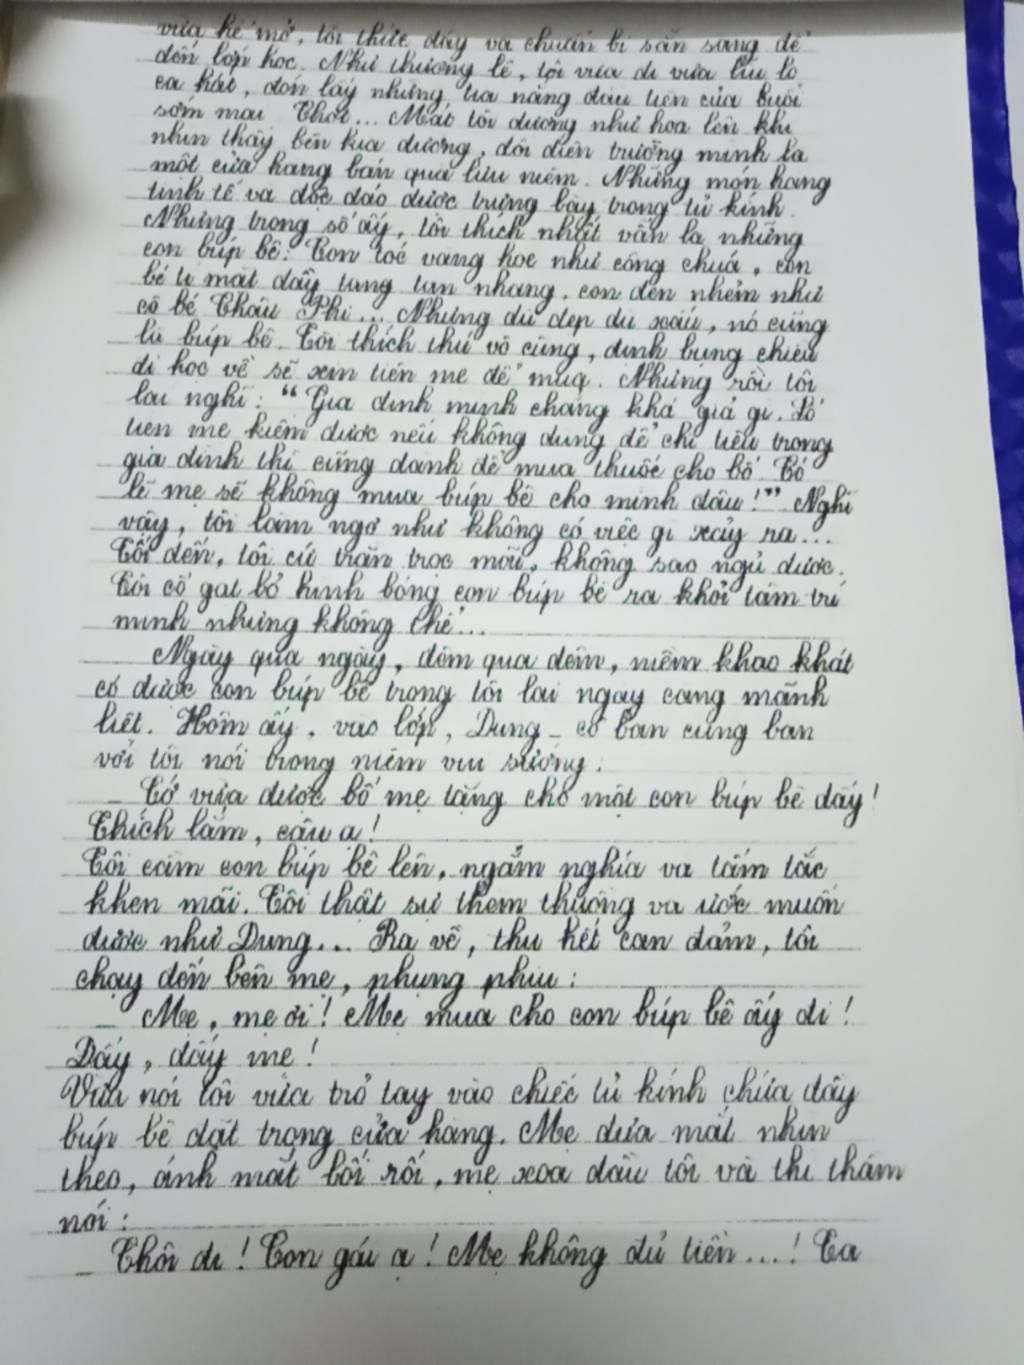 vừa hé mở, tôi thức dậy và chuẩn bị sẵn sàng để
đến lớp học. Như thường lệ, tôi vừa đi vừa líu lo
ca hát, đón lấy những tia nắng đầu tiên của buổi
sớm mai. Chợt... Mắt tôi dường như hoa lên khi
nhìn thấy bên kia đường, đối diện trường mình là
một cửa hàng bán quà lưu niệm. Những món hàng
tinh tế và độc đáo được trưng bày trong tủ kính.
Nhưng trong số ấy, tôi thích nhất vẫn là những
con búp bê: Con tóc vàng hoe như công chúa, con
bé tí mặt đầy tàng tàn nhang, con đen nhẻm như
cô bé Châu Phi... Nhưng dù đẹp dù xấu, nó cũng
là búp bê. Tôi thích thú vô cùng, định bụng chiều
đi học về sẽ xin tiền mẹ để mua. Nhưng rồi tôi
lại nghĩ: "Gia đình mình chẳng khá giả gì. Số
tiền mẹ kiếm được nếu không dùng để chi tiêu trong
gia đình thì cũng dành để mua thuốc cho bố. Có
lẽ mẹ sẽ không mua búp bê cho mình đâu!" Nghĩ
vậy, tôi làm ngơ như không có việc gì xảy ra...
Tối đến, tôi cứ trằn trọc mãi, không sao ngủ được.
Tôi cố gạt bỏ hình bóng con búp bê ra khỏi tâm trí
mình nhưng không thể...
Ngày qua ngày, đêm qua đêm, niềm khao khát
có được con búp bê trong tôi lại ngày càng mãnh
liệt. Hôm ấy, vào lớp, Dung - cô bạn cùng bàn
với tôi nói trong niềm vui sướng:
_ Tớ vừa được bố mẹ tặng cho một con búp bê đấy!
Thích lắm, cậu ạ!
Tôi cầm con búp bê lên, ngắm nghía và tấm tắc
khen mãi. Tôi thật sự thèm thuồng và ước muốn
được như Dung... Ra về, thu hết can đảm, tôi
chạy đến bên mẹ, phụng phịu:
_ Mẹ, mẹ ơi! Mẹ mua cho con búp bê ấy đi!
Đấy, đấy mẹ!
Vừa nói tôi vừa trỏ tay vào chiếc tủ kính chứa đầy
búp bê đặt trong cửa hàng. Mẹ đưa mắt nhìn
theo, ánh mắt bối rối, mẹ xoa đầu tôi và thì thầm
nói:
_ Thôi đi! Con gái ạ! Mẹ không đủ tiền...! Ta